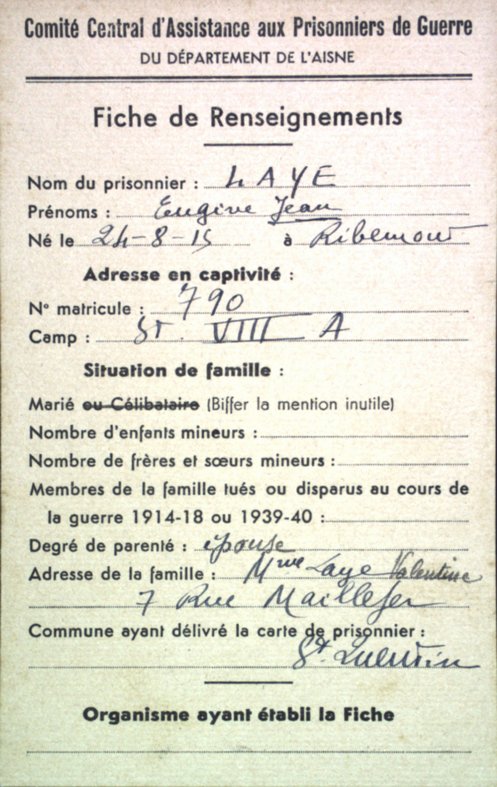 Comité Central d'Assistance aux Prisonniers de Guerre
DU DÉPARTEMENT DE L'AISNE
Fiche de Renseignements
Nom du prisonnier : LAYE
Prénoms : Eugène Jean
Né le 24-8-15 à Ribemont
Adresse en captivité :
N° matricule : 790
Camp : St. VIII A
Situation de famille :
Marié ou Célibataire (Biffer la mention inutile)
Nombre d'enfants mineurs :
Nombre de frères et sœurs mineurs :
Membres de la famille tués ou disparus au cours de
la guerre 1914-18 ou 1939-40 :
Degré de parenté : épouse
Adresse de la famille : Mme Laye Valentine
7 Rue Maillefer
Commune ayant délivré la carte de prisonnier :
St. Quentin
Organisme ayant établi la Fiche